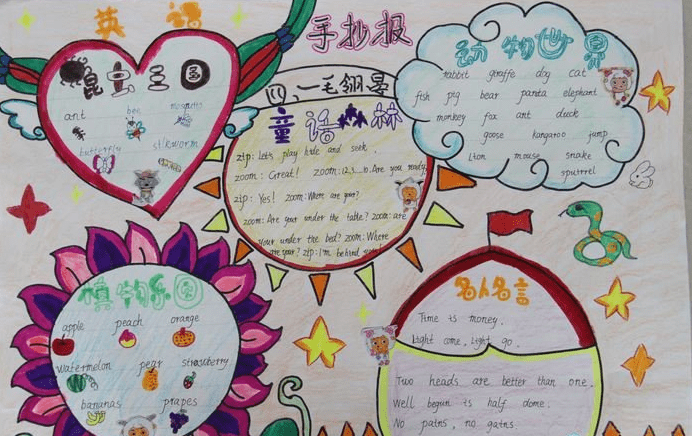 英语
手抄报
昆虫王国
ant bee mosquito
butterfly silkworm
一毛
童话森林
zip: Let's play hide and seek.
zoom: Great! zoom: 1.2.3...10. Are you ready
zip: Yes! zoom: Where are your?
zoom: Are your under the table? zoom: are
your under the bed? zoom: Where
are your? zip: I'm behind
动物世界
rabbit giraffe dog cat
fish pig bear panta elephant
monkey fox ant duck
goose kangaroo jump
Lion mouse snake
植物乐园
apple peach orange
watermelon pear strawberry
bananas grapes
名人名言
Time is money.
Light come, Light go.
Two heads are better than one.
Well begun is half dome.
No pains, no gains